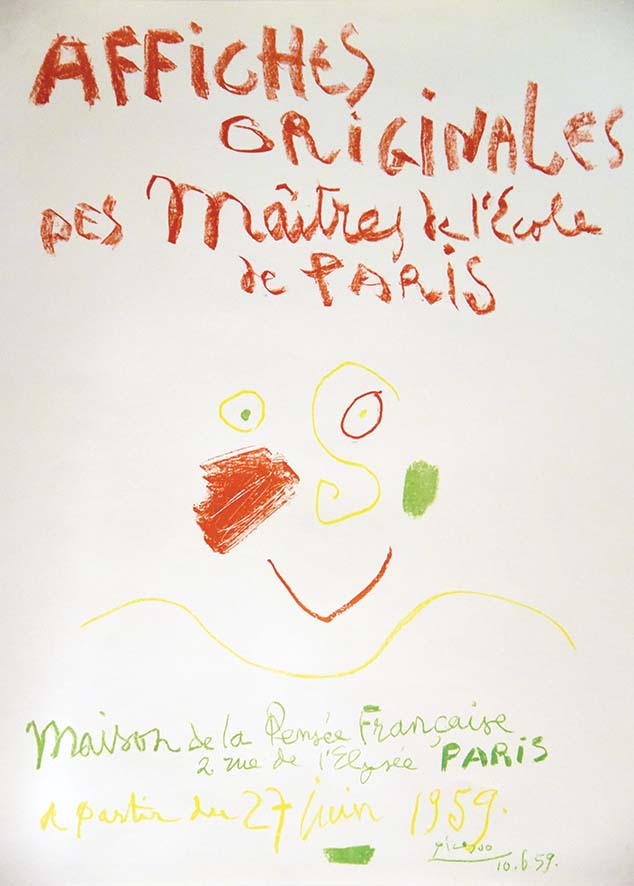 AFFiCHES
ORiGiNALES
DES Maîtres de l'Ecole
de PARiS
Maison de la Pensée Française
2 rue de l'Elysée PARiS
a partir du 27 juin 1959.
Picasso
10.6.59.